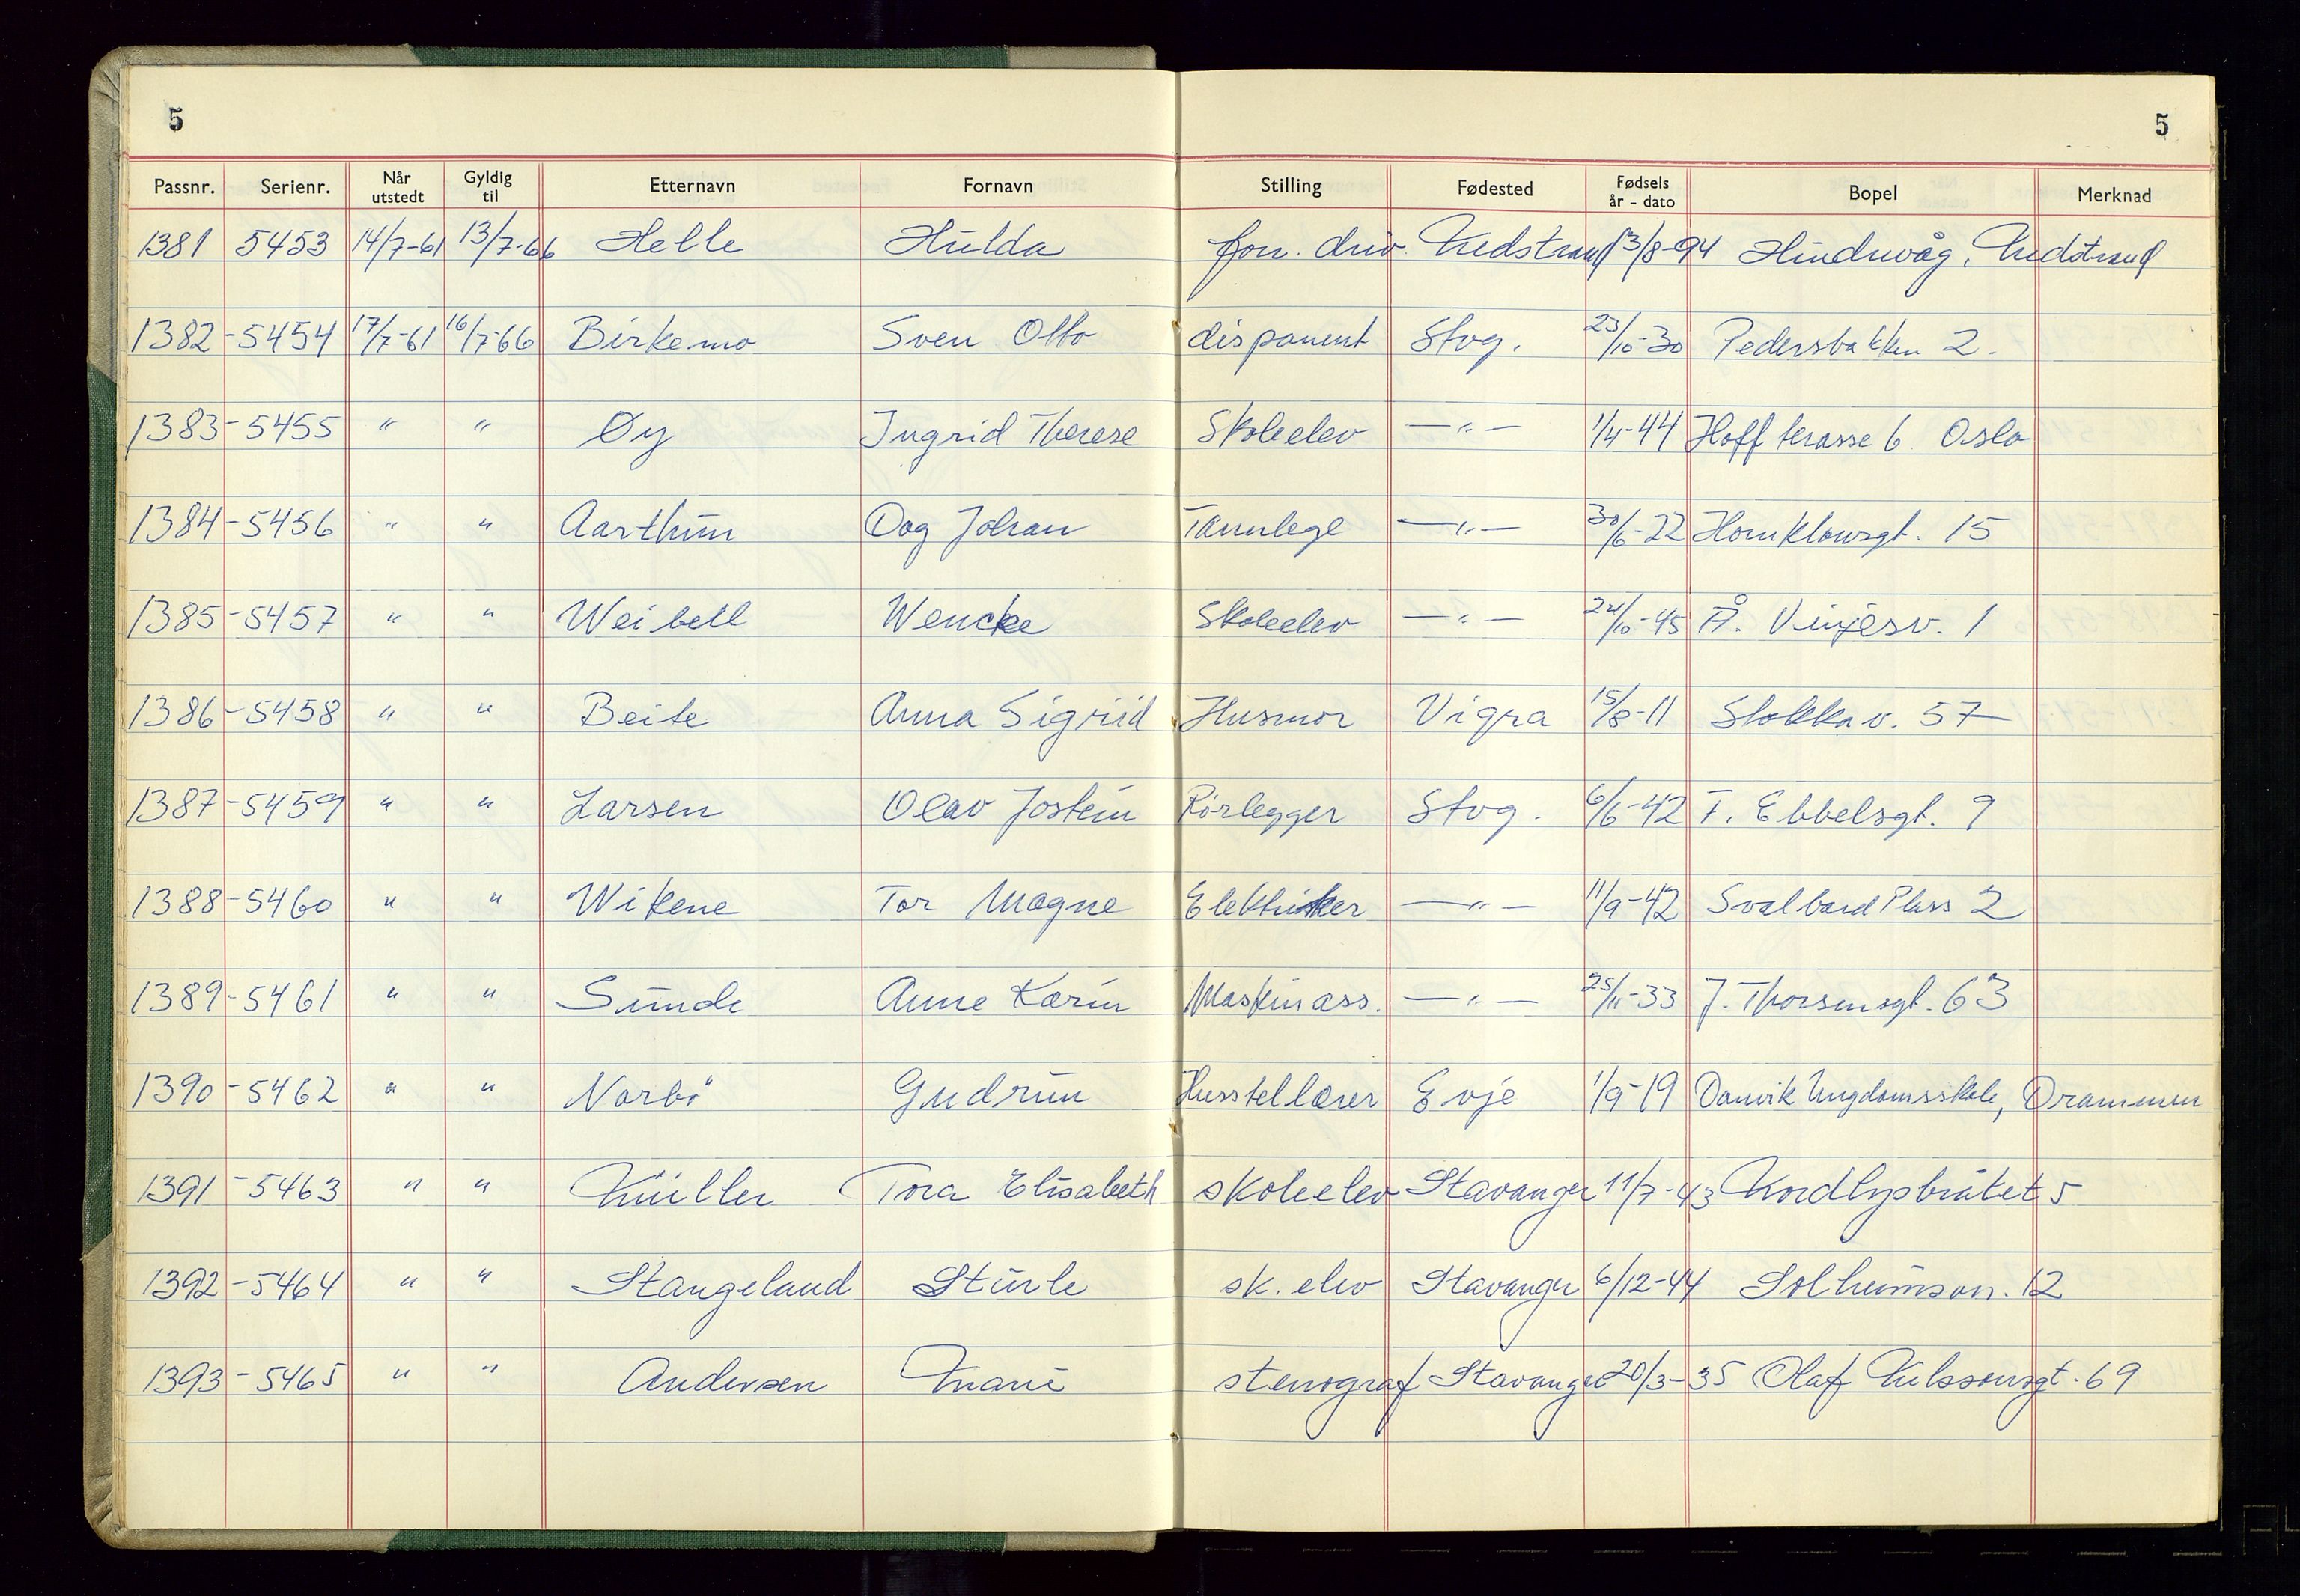 5 5
Passnr. Serienr. Når utstedt Gyldig til Etternavn Fornavn Stilling Fødested Fødsels år - dato Bopel Merknad
1381 5453 14/7-61 13/7-66 Helle Hulda forr. driv. Nedstrand 13/8-94 Hindervåg, Nedstrand
1382 - 5454 17/7-61 16/7-66 Birkemo Sven Otto disponent Stvg. 23/10-30 Pedersbakken 2.
1383 - 5455 " " Øy Ingrid Therese Skoleelev —"— 1/4-44 Hoff terasse 6 Oslo
1384 - 5456 " " Aarthun Dag Johan Tannlege —"— 30/6-22 Hornklovsgt. 15
1385 - 5457 " " Weibell Wencke Skoleelev —"— 24/10-45 Å. Vinjesv. 1
1386 - 5458 " " Beite Anna Sigriid Husmor Vigra 15/8-11 Stokkav. 57
1387 - 5459 " " Larsen Olav Jostein Rørlegger Stvg. 6/6-42 T. Ebbelsgt. 9
1388 - 5460 " " Wikene Tor Magne Elektriker —"— 11/9-42 Svalbard Plass 2
1389 - 5461 " " Sunde Anne Karin Maskinass. —"— 25/11-33 J. Thorsensgt. 63
1390 - 5462 " " Norbö Gudrun Husstellærer Evje 1/9-19 Danvik Ungdomsskole, Drammen
1391 - 5463 " " Müller Tora Elisabeth skoleelev Stavanger 11/7-43 Nordlysbråtet 5
1392 - 5464 " " Stangeland Sturle sk. elev Stavanger 6/12-44 Solheimsvn. 12
1393 - 5465 " " Andersen Marie stenograf Stavanger 20/3-35 Olaf Nilssonsgt. 69